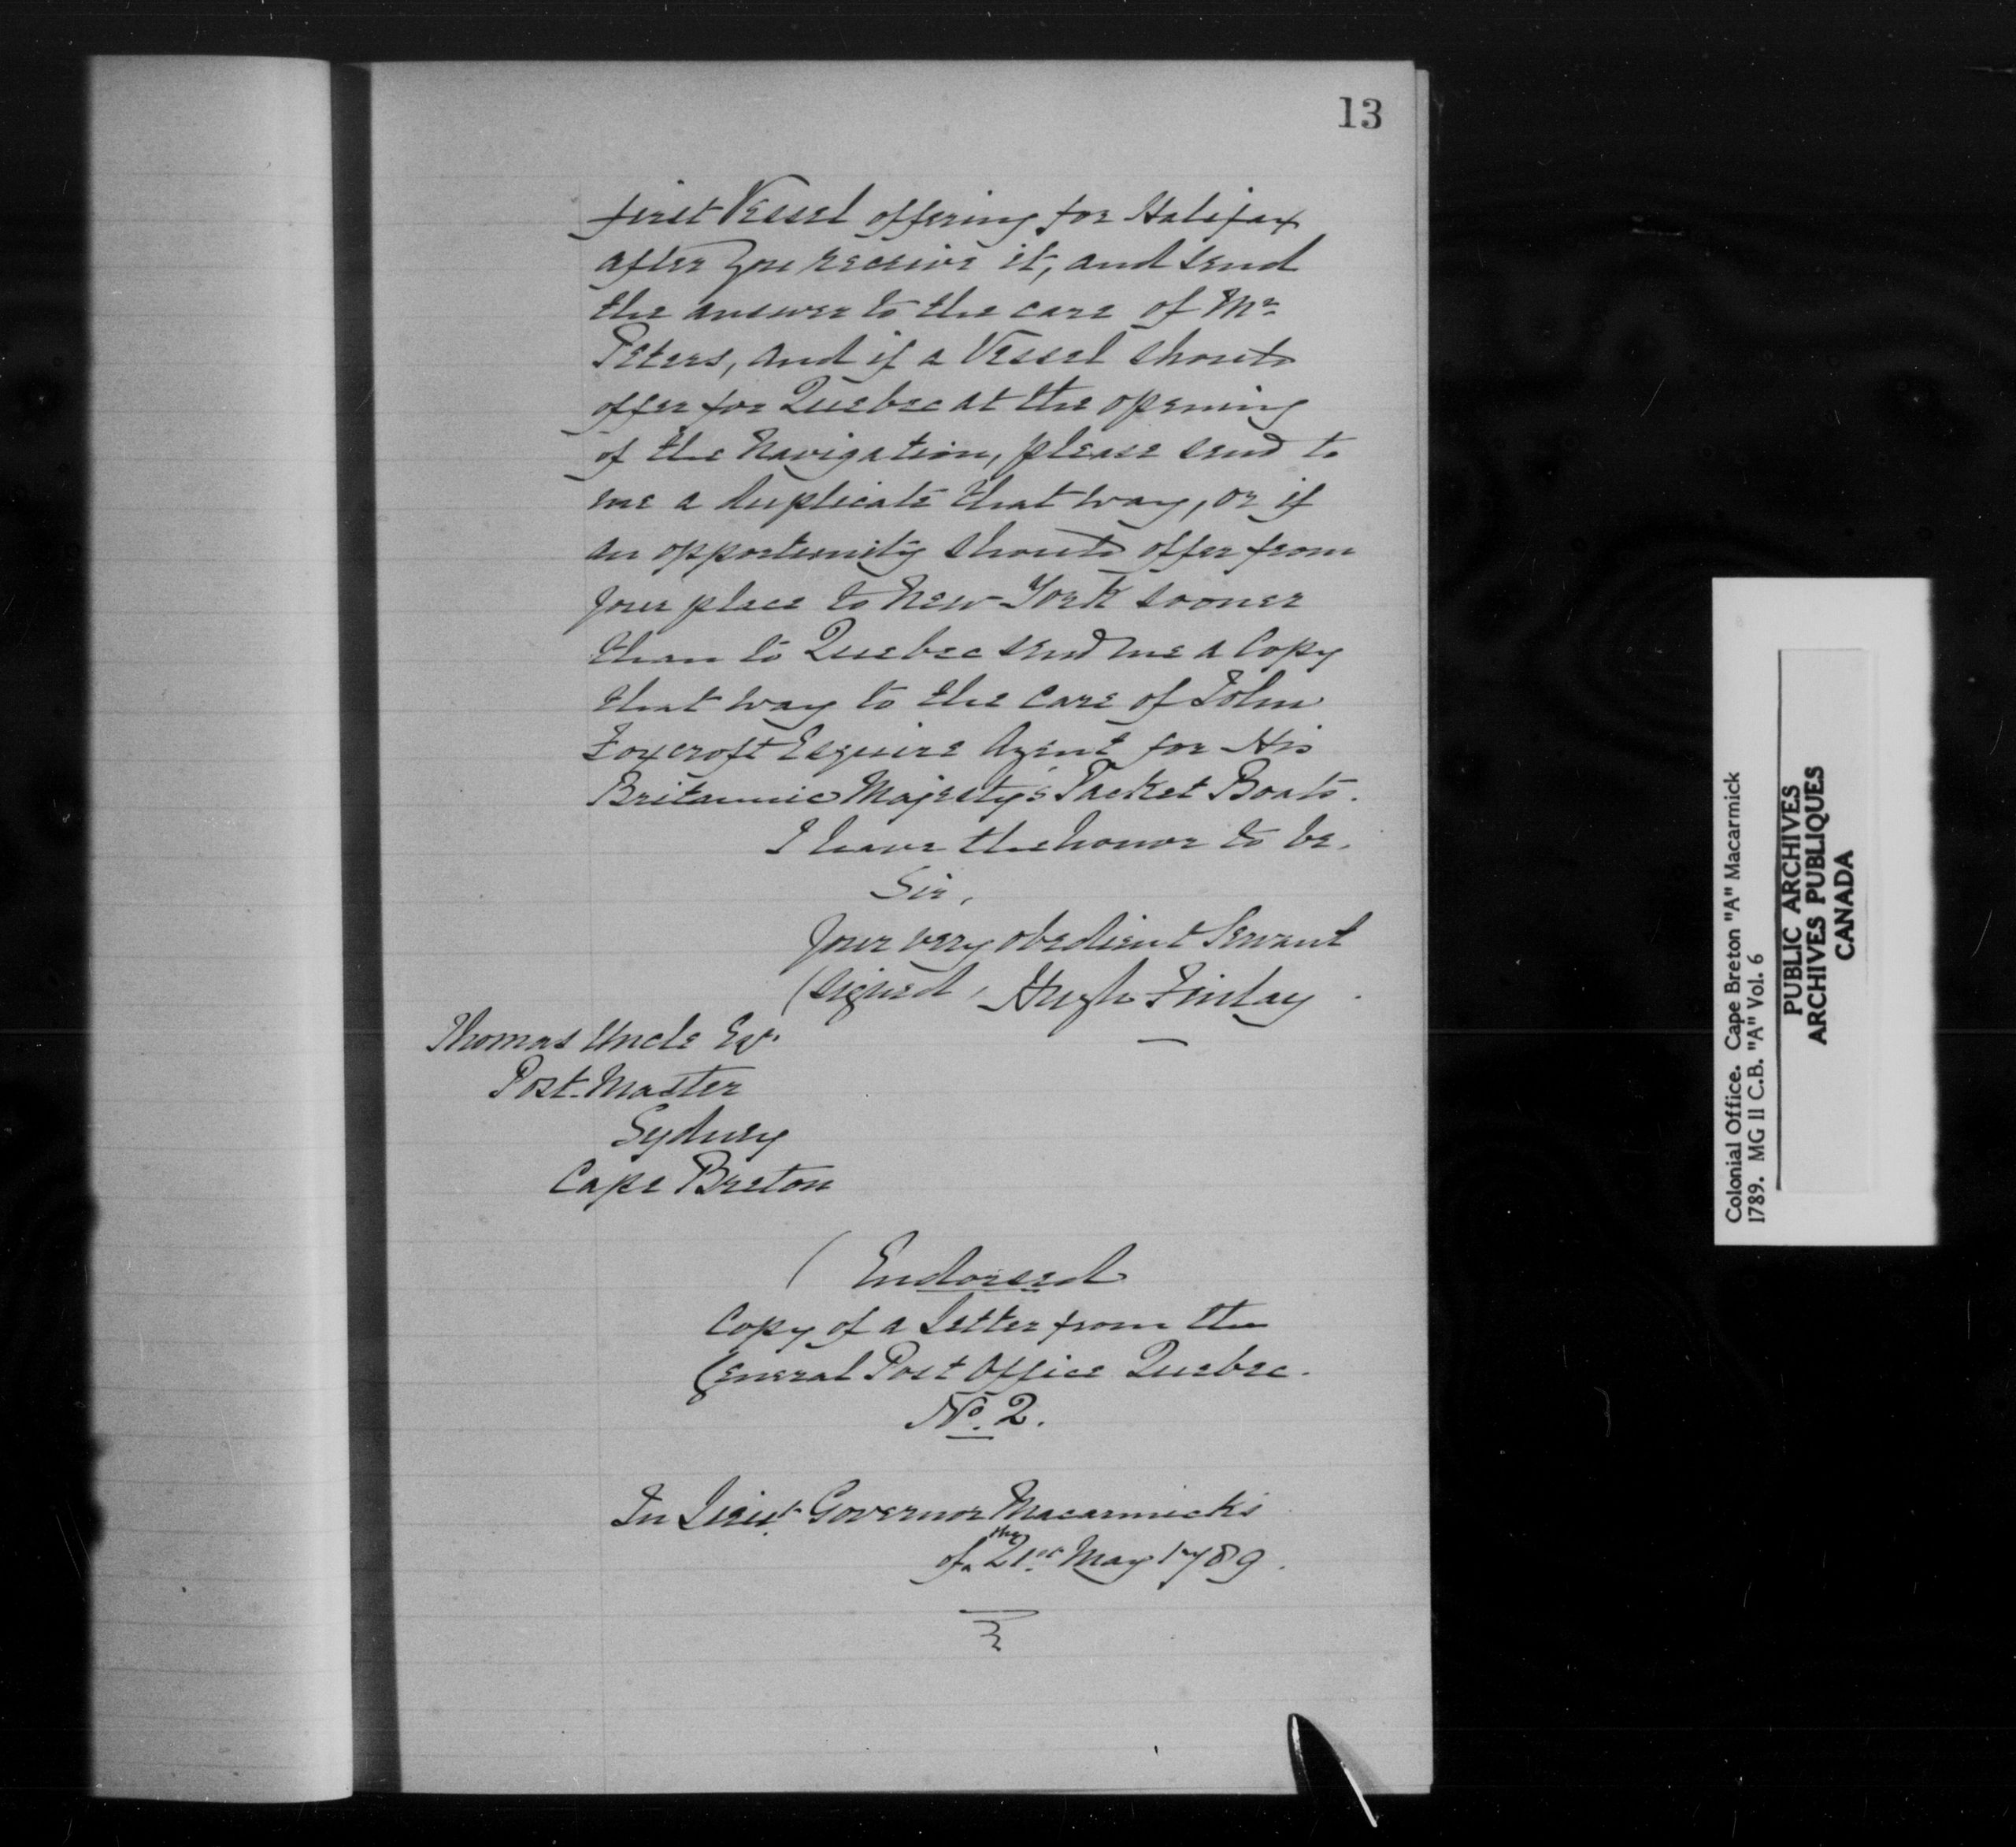 13
first Vessel offering for Halifax
after you receive it, and send
the answer to the care of Mr.
Peters, and if a Vessel should
offer for Quebec at the opening
of the Navigation, please send to
me a duplicate that way, or if
an opportunity should offer from
your place to New-York sooner
than to Quebec send me a Copy
that way to the care of John
Foxcroft Esquire Agent for His
Britannic Majesty's Packet Boats.
I have the honor to be.
Sir,
Your very obedient Servant
(Signed, Hugh Finlay
Thomas Uncle Esqr.
Post-Master
Sydney
Cape Breton
( Endorsed
Copy of a Letter from the
General Post Office Quebec.
No. 2.
In Lieut. Governor Macarmick's
of the 21st May 1789.
Colonial Office. Cape Breton "A" Macarmick
1789. MG 11 C.B. "A" Vol. 6
PUBLIC ARCHIVES
ARCHIVES PUBLIQUES
CANADA